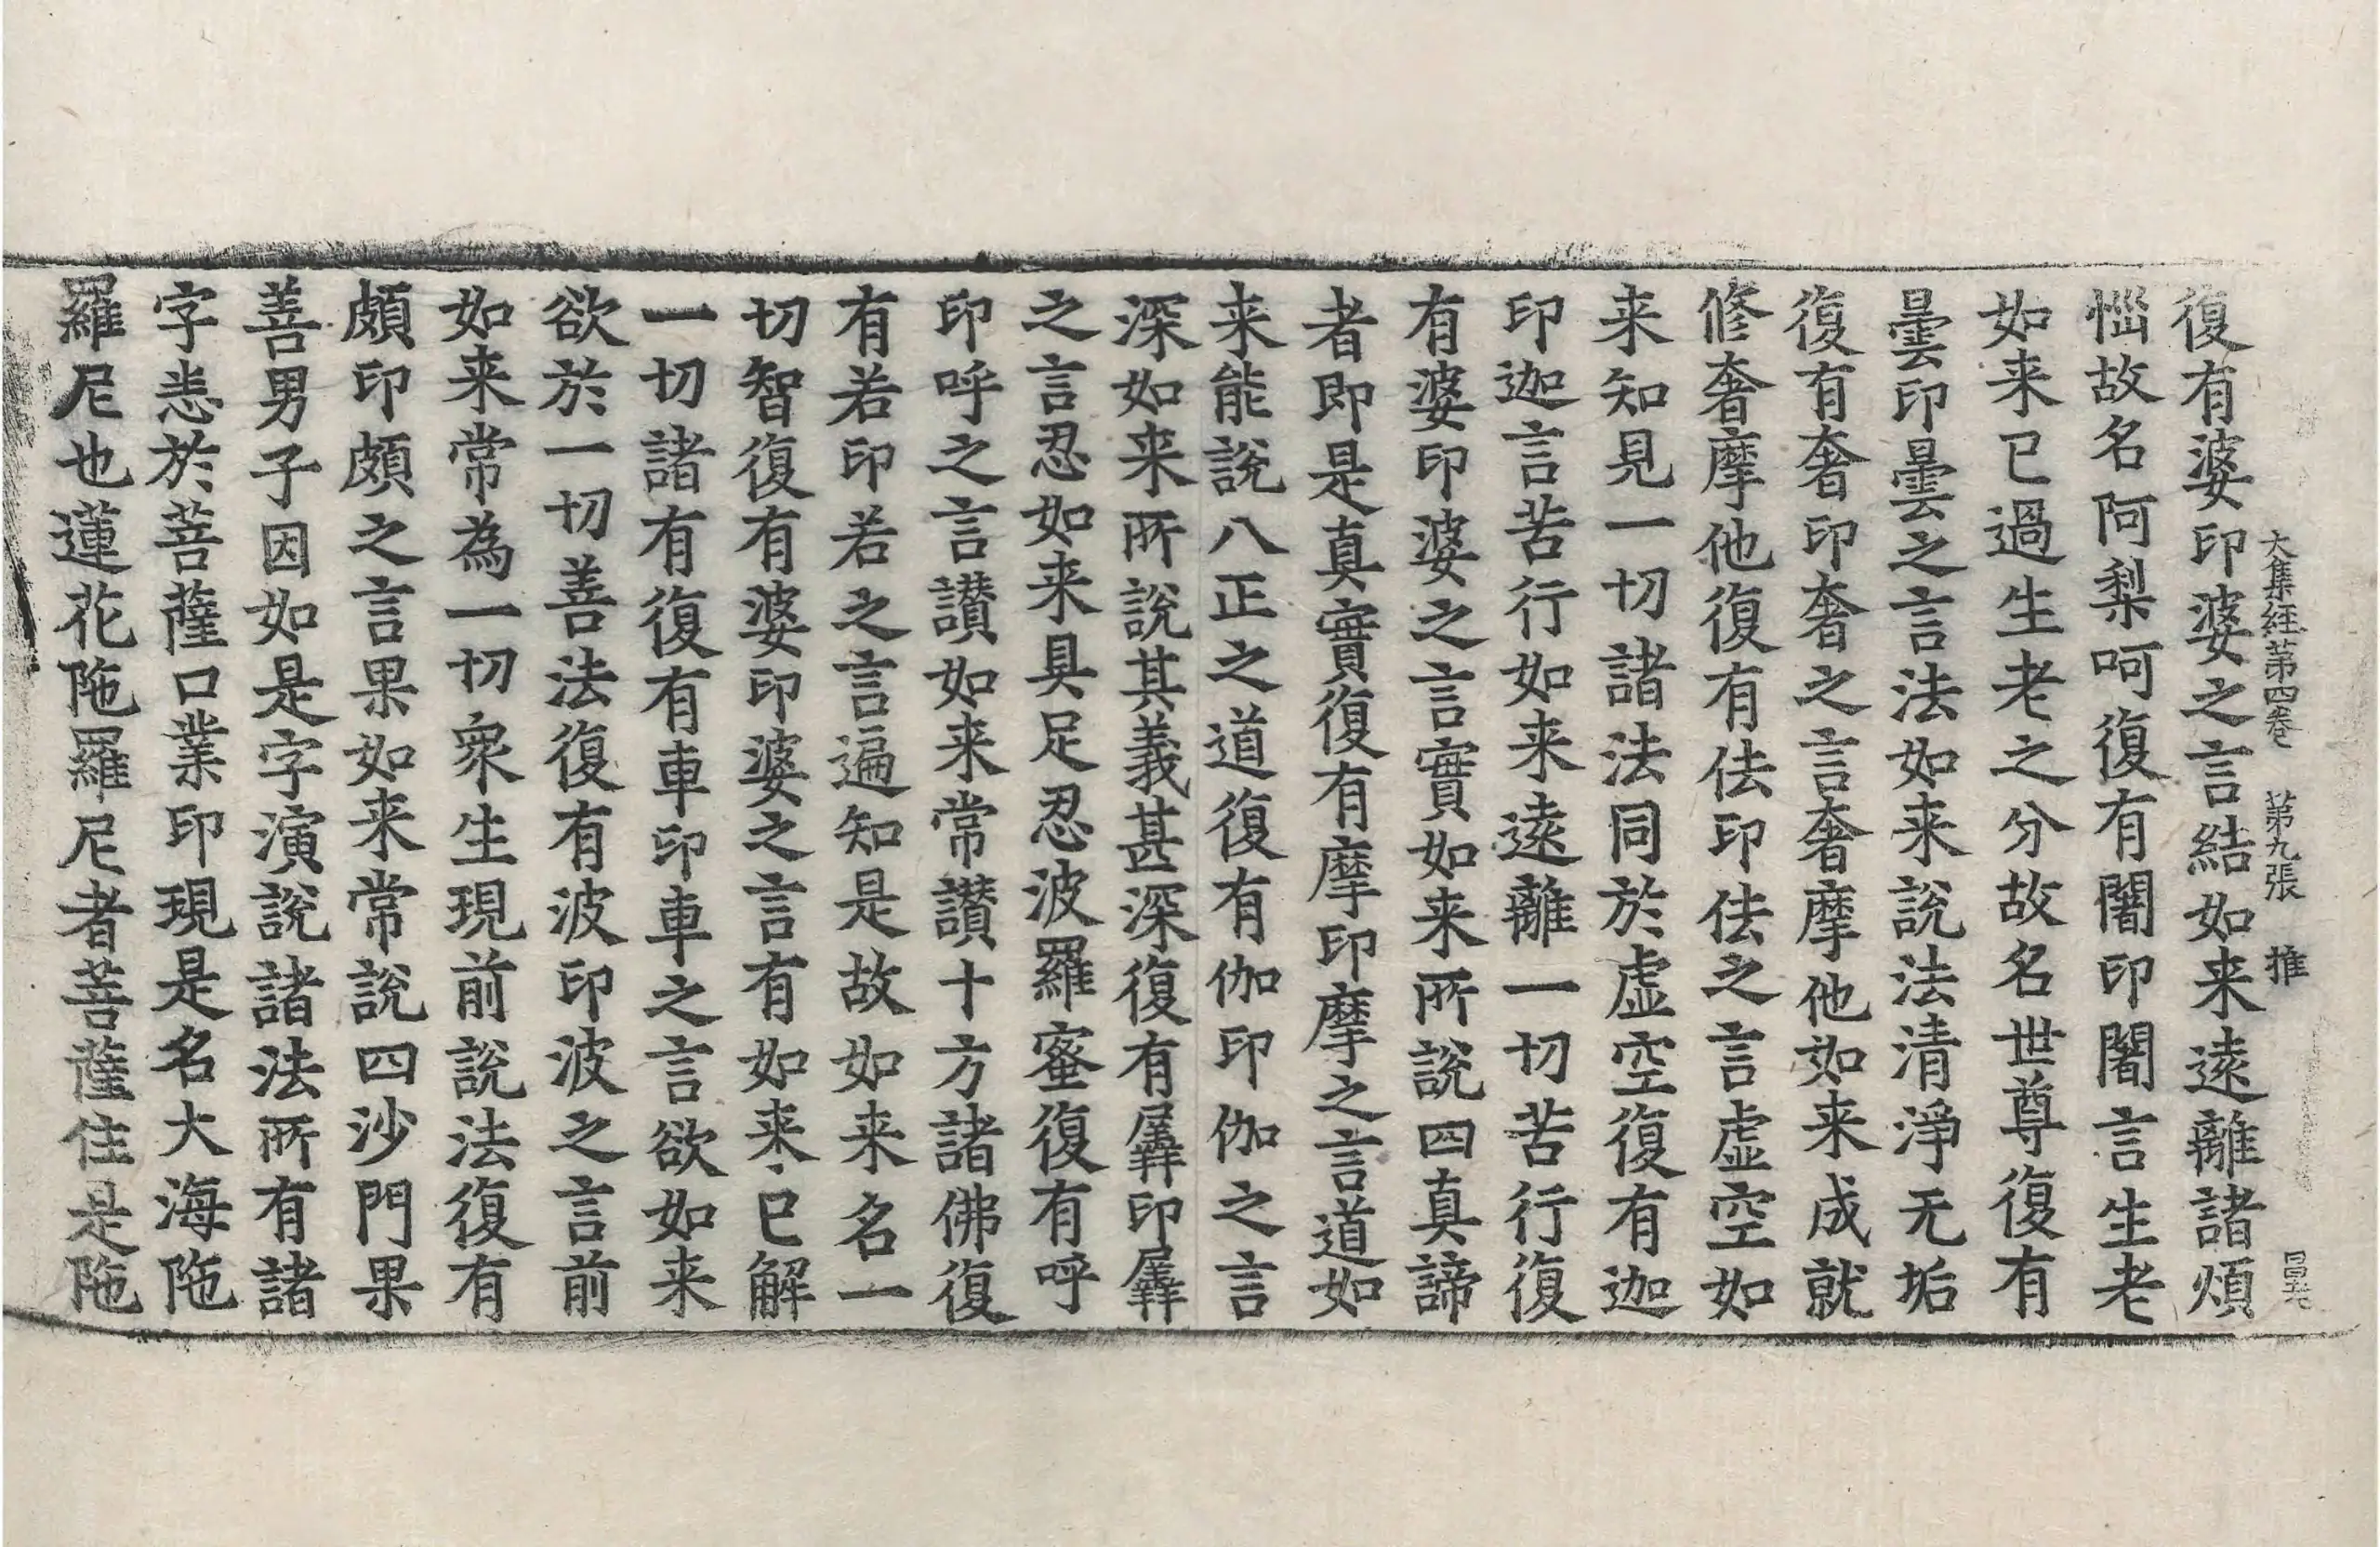 大集經第四卷 第九張 推
復有婆印婆之言結如来遠離諸煩
惱故名阿梨呵復有闍印闍言生老
如来已過生老之分故名世尊復有
曇印曇之言法如来說法清淨无垢
復有奢印奢之言奢摩他如来成就
修奢摩他復有佉印佉之言虛空如
来知見一切諸法同於虛空復有迦
印迦言苦行如来遠離一切苦行復
有婆印婆之言實如来所說四真諦
者即是真實復有摩印摩之言道如
来能說八正之道復有伽印伽之言
深如来所說其義甚深復有羼印羼
之言忍如来具足忍波羅蜜復有呼
印呼之言讃如来常讃十方諸佛復
有若印若之言遍知是故如来名一
切智復有婆印婆之言有如来已解
一切諸有復有車印車之言欲如来
欲於一切善法復有波印波之言前
如来常為一切眾生現前說法復有
頗印頗之言果如来常說四沙門果
善男子因如是字演說諸法所有諸
字恙於菩薩口業印現是名大海陁
羅尼也蓮花陁羅尼者菩薩住是陁